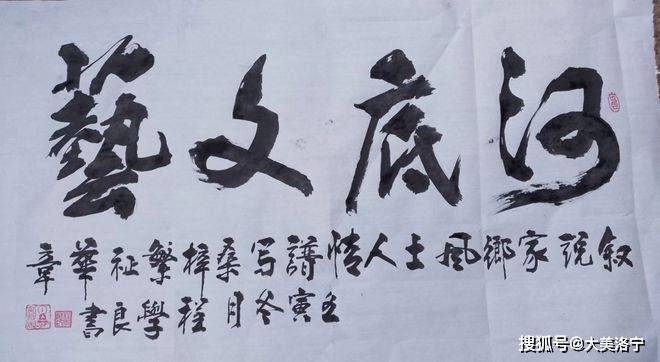 河底文藝
叙説家鄉風土人情譜写桑梓繁祉華章
壬寅冬月程學良書
搜狐号@大美洛宁